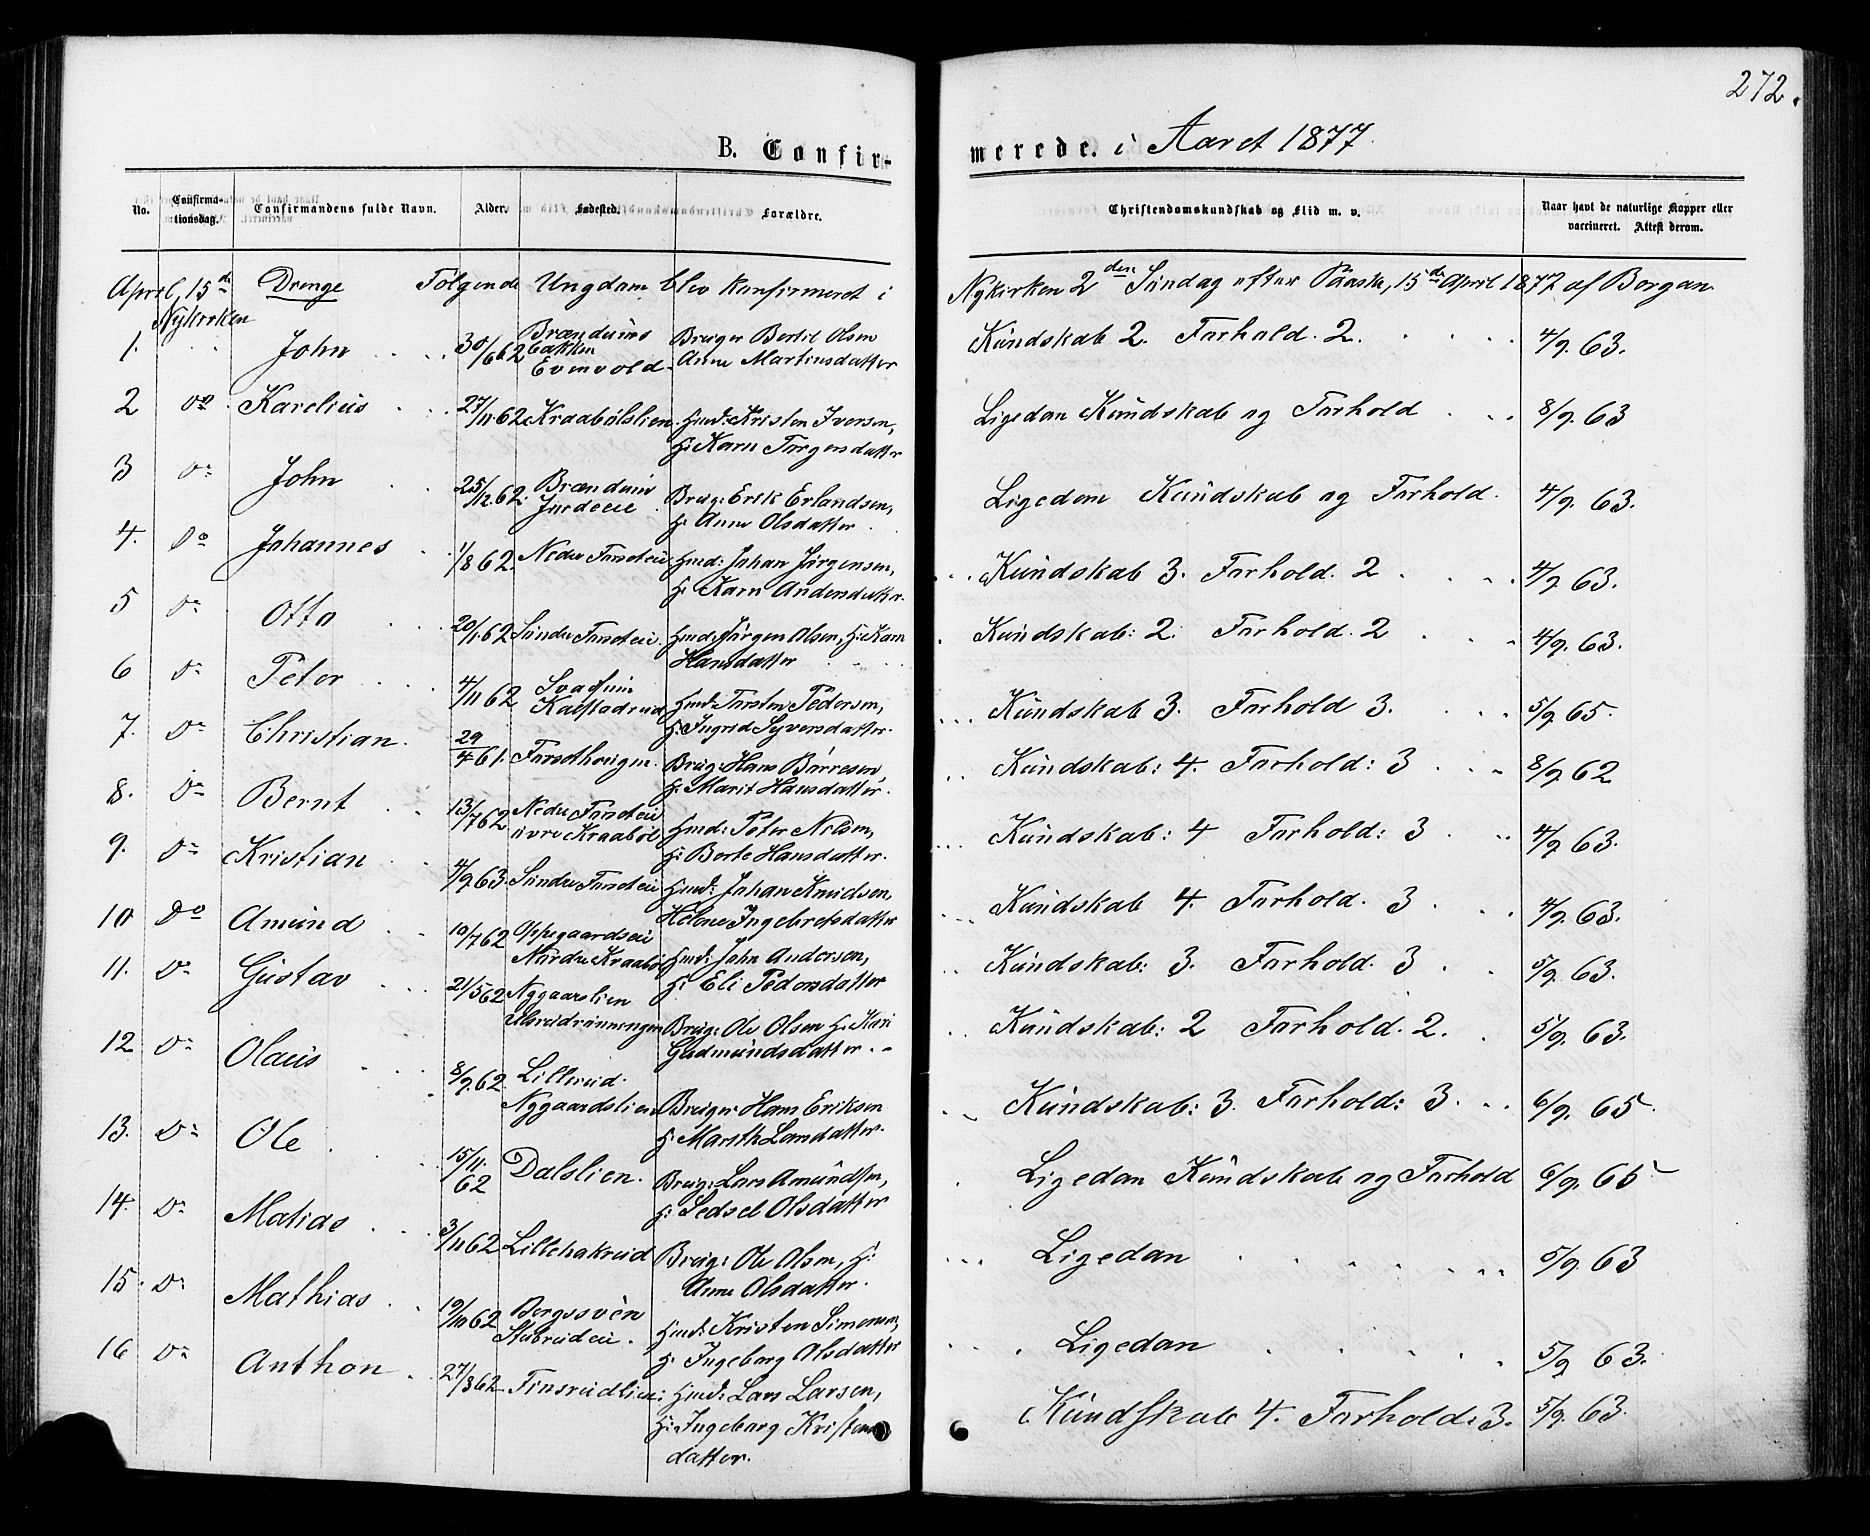 272.
B. Confir-
merede. i Aaret 1877.
No.
Confirma-
tionsdag.
Confirmandens fulde Navn.
Alder.
Fødested.
Forældre.
Christendomskundskab og Flid m. v.
Naar havt de naturlige Kopper eller
vaccineret. Attest derom.
April, 15de Drenge Følgende Ungdom blev konfirmeret i Nykirken 2den Søndag efter Paaske, 15de April 1877 af Borgan
Nykirken
1. John 30/6 62 Brændums Bruger Bertil Olsen Kundskab 2. Forhold. 2. 4/9. 63.
bakken
Evenvold Anne Martinsdatter
2 Do Karelius 27/11 62 Kraabølslien Hmd: Kristen Iversen, Ligedan Kundskab og Forhold 8/9. 63
H: Karn Torgersdatter
3 Do John 25/12. 62. Brændum Brug: Erik Erlandsen, Ligedan Kundskab og Forhold. 4/9. 63.
Jurdeeie H: Anne Olsdatter
4. Do Johannes 1/8 62. Nedre Forsteie Hmd: Johan Jørgensen, Kundskab 3. Forhold. 2 4/9. 63.
H: Karn Andersdatter.
5 Do Otto 20/1. 62 Søndre Forsteie Hmd: Jørgen Olsen, H: Karn Kundskab: 2. Forhold. 2 4/9. 63.
Hansdatter
6 Do Peter 4/11 62 Hmd: Torsten Pedersen, Kundskab 3. Forhold 3. 5/9. 65.
H: Ingrid Syversdatter.
7. Do Christian. 29/4 61. Forsethougen. Brug: Hans Børresen, Kundskab: 4. Forhold: 3 8/9. 62
H: Marit Hansdatter.
8. Do Bernt 13/7 62 Nedre Forsteie Hmd: Peter Nilsen, Kundskab: 4 Forhold: 3 4/9. 63.
øvre Kraabøl H: Berte Hansdatter.
9. Do Kristian 4/9 63. Søndre Forsteie Hmd: Johan Knudsen, Kundskab 4. Forhold. 3 4/9. 63.
Helene Ingebretsdatter
10 Do Amund 10/7 62 Oppegaardseie Hmd: John Andersen, Kundskab: 3. Forhold. 3 5/9. 63.
Nordre Kraabøl H: Eli Pedersdatter
11. Do Gustav 21/5 62 Nygaardslien Brug: Ole Olsen H: Kari Kundskab: 2 Forhold. 2. 5/9. 63.
Ulsrudrønningen Gudmundsdatter.
12 Do Olaus 8/9. 62. Lillerud. Bruger Hans Eriksen Kundskab: 3. Forhold: 3. 6/9. 65.
Nygaardslien H: Marthe Larsdatter.
13. Do Ole 15/11. 62 Dalslien. Brug: Lars Amundsen, Ligedan Kundskab og Forhold 6/9. 65
H: Sedsel Olsdatter
14. Do Matias 3/11 62 Lillehakrud Brug: Ole Olsen, H: Ligedan 5/9. 63
Anne Olsdatter.
15. Do Mathias 19/10 62 Bergssvèn Hmd: Kristen Simensen, Ligedan 5/9 63.
Stubrudeie. H: Ingeborg Olsdatter
16 Do Anthon 27/3 62. Finsrudlien: Hmd: Lars Larsen, Kundskab 4. Forhold: 3. 5/9. 63.
H: Ingeborg Kristens
datter.